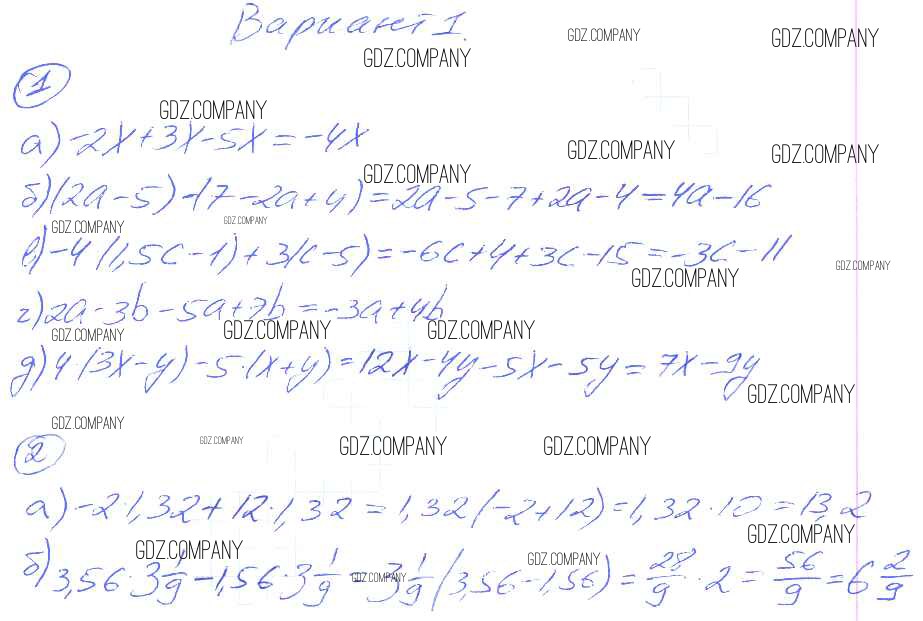 Вариант 1.
GDZ.COMPANY GDZ.COMPANY GDZ.COMPANY
1
GDZ.COMPANY
а) -2x+3x-5x=-4x
GDZ.COMPANY GDZ.COMPANY
GDZ.COMPANY
б) (2a-5)-(7-2a+4)=2a-5-7+2a-4=4a-16
GDZ.COMPANY GDZ.COMPANY
в) -4(1,5c-1)+3(c-5)=-6c+4+3c-15=-3c-11
GDZ.COMPANY GDZ.COMPANY
г) 2a-3b-5a+7b=-3a+4b
GDZ.COMPANY GDZ.COMPANY GDZ.COMPANY
д) 4·(3x-y)-5·(x+y)=12x-4y-5x-5y=7x-9y
GDZ.COMPANY
GDZ.COMPANY
2
GDZ.COMPANY GDZ.COMPANY GDZ.COMPANY
а) -2·1,32+12·1,32=1,32(-2+12)=1,32·10=13,2
GDZ.COMPANY
GDZ.COMPANY GDZ.COMPANY
б) 3,56·3 1/9-1,56·3 1/9=3 1/9(3,56-1,56)=28/9·2=56/9=6 2/9
GDZ.COMPANY